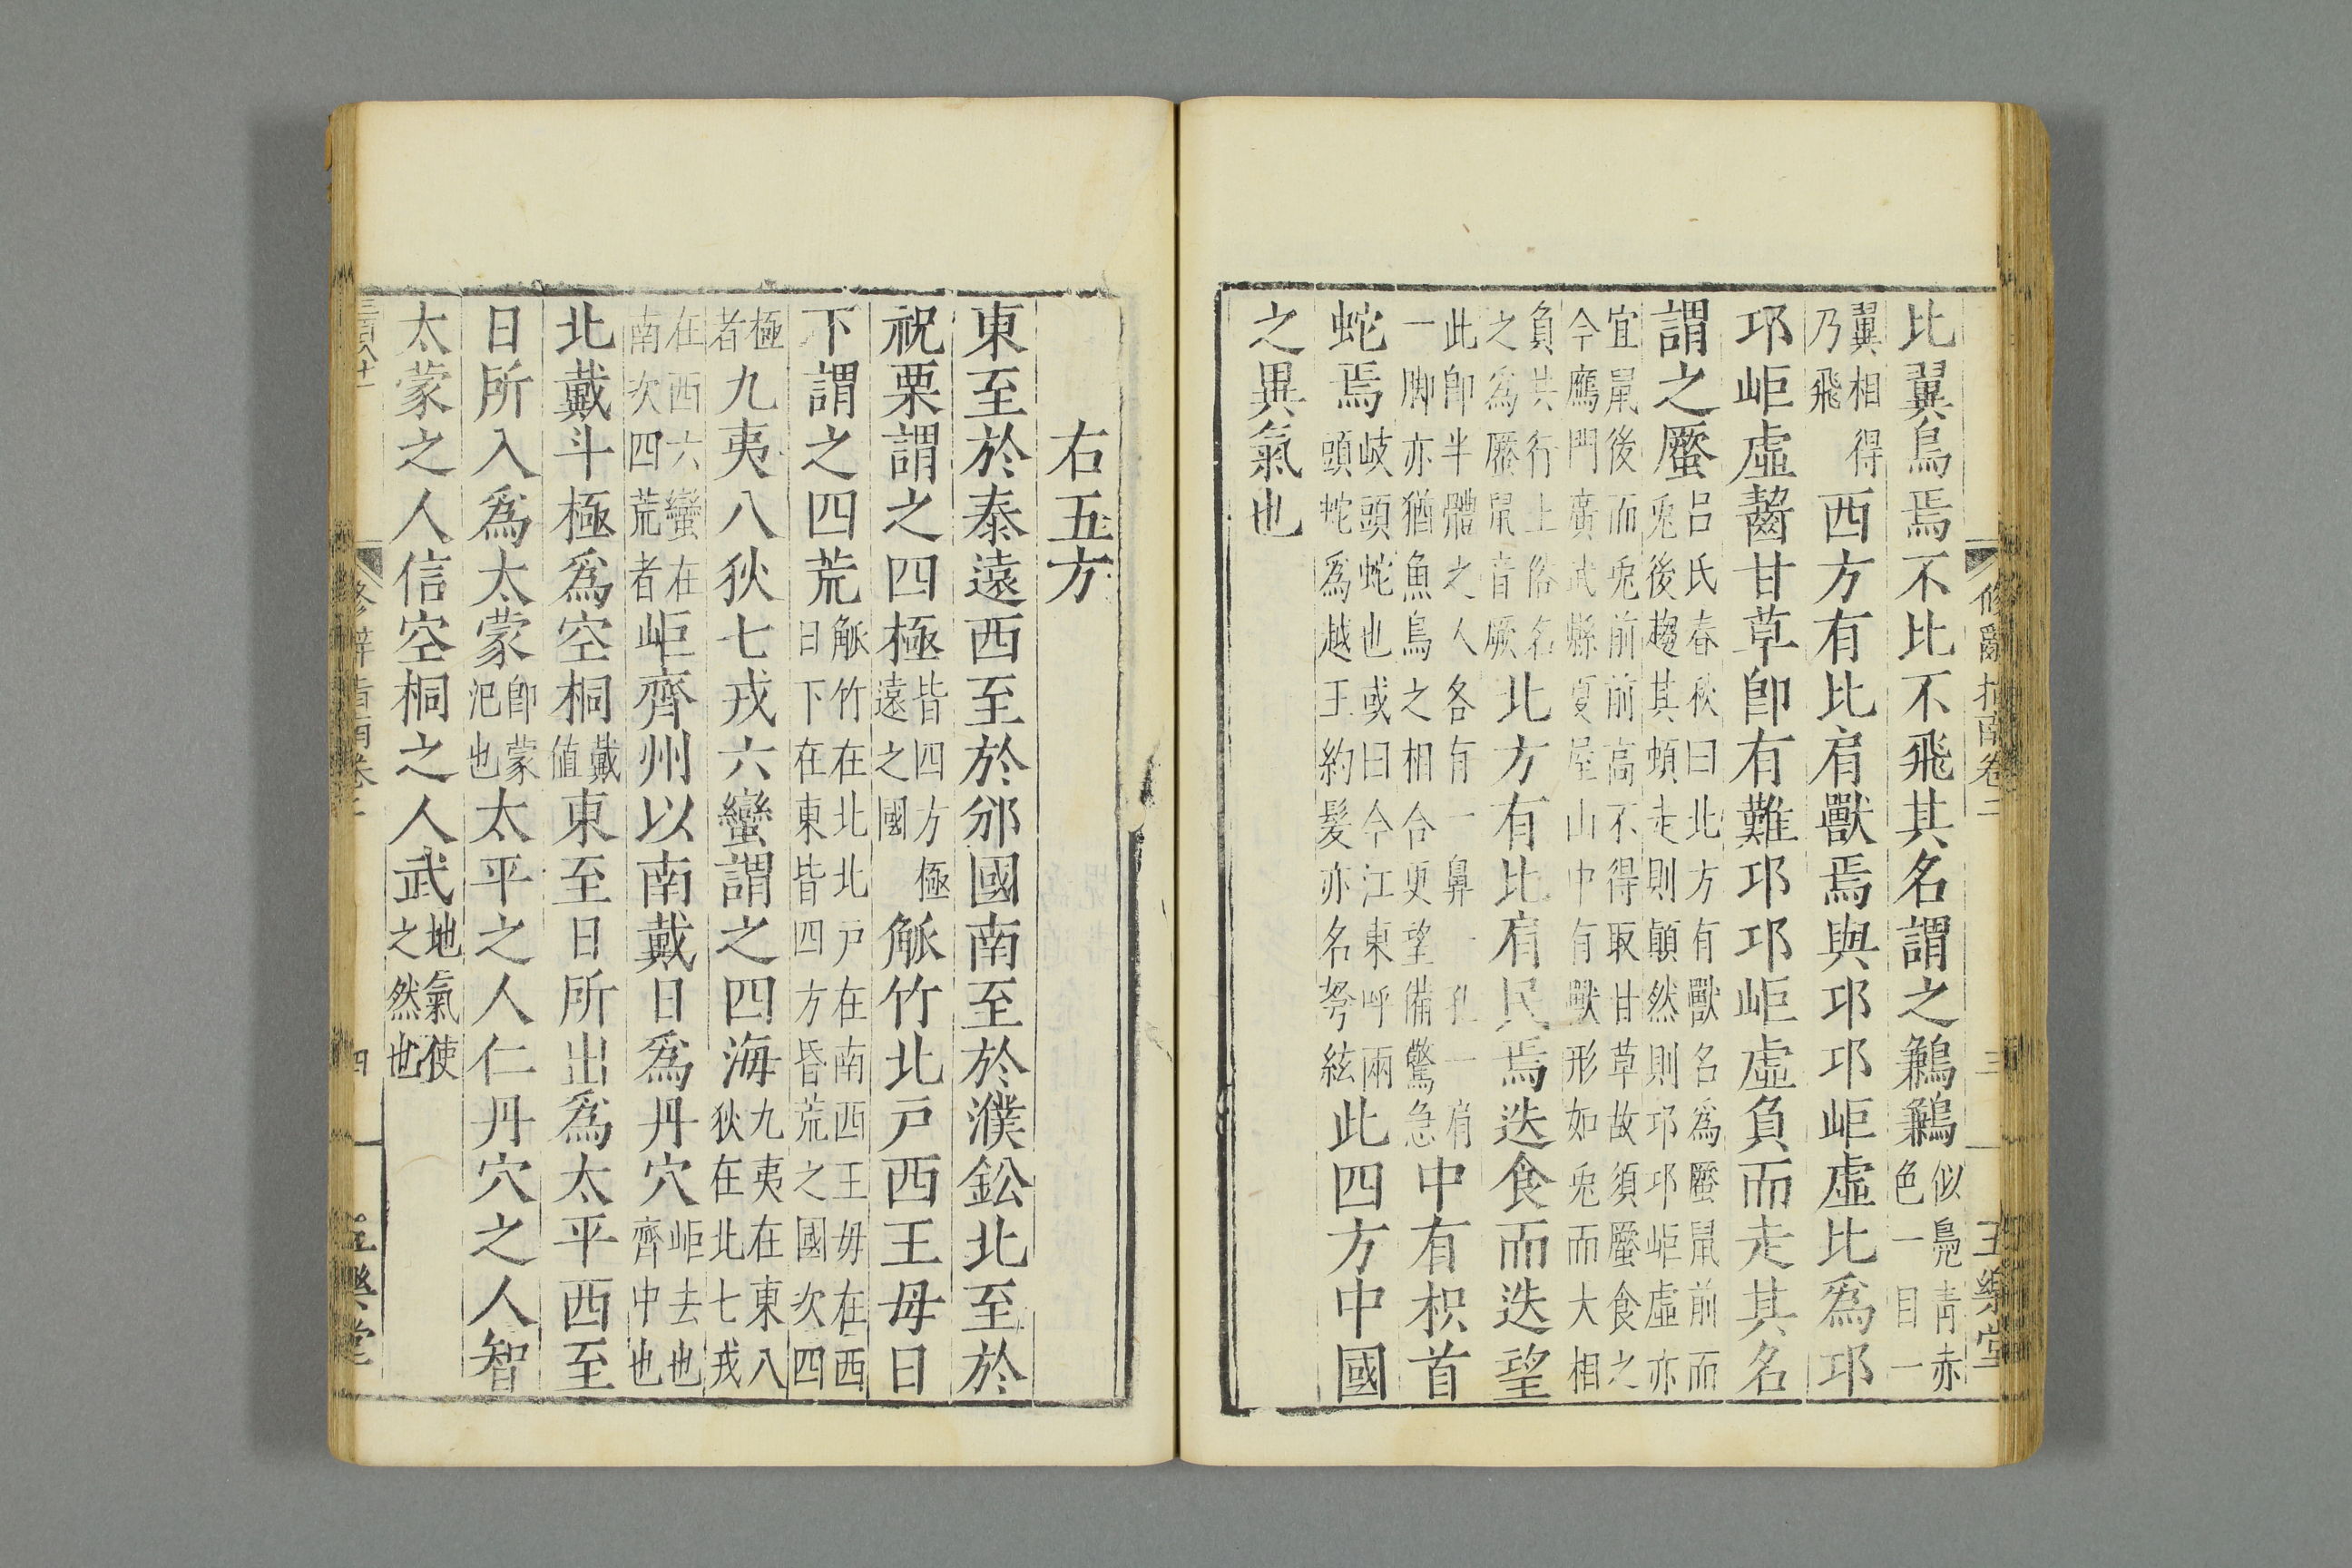 修辭指南卷二 三 三樂堂
比翼鳥焉不比不飛其名謂之鶼鶼似鳧青赤色一目一
翼相得乃飛西方有比肩獸焉與邛邛岠虛比爲邛
邛岠虛齧甘草卽有難邛邛岠虛負而走其名
謂之蟨呂氏春秋曰北方有獸名爲蟨鼠前而兎後趨其頓走則顛然則邛邛岠虛亦
宜鼠後而兎前前高不得取甘草故須蟨食之今鷹門廣武縣夏屋山中有獸形如兎而大相
負共行土俗名之為蟨鼠音厥北方有比肩民焉迭食而迭望
此卽半體之人各有一鼻一孔一肩一脚亦猶魚鳥之相合更望備驚急中有枳首
蛇焉岐頭蛇也或曰今江東呼兩頭蛇爲越王約髮亦名弩絃此四方中國
之異氣也
右五方
東至於泰遠西至於邠國南至於濮鈆北至於
祝栗謂之四極皆四方極遠之國觚竹北戸西王母日
下謂之四荒觚竹在北北戸在南西王母在西日下在東皆四方昏荒之國次四
極者九夷八狄七戎六蠻謂之四海九夷在東八狄在北七戎
在西六蠻在南次四荒者岠齊州以南戴日爲丹穴岠去也齊中也
北戴斗極爲空桐戴值東至日所出爲太平西至
日所入爲太蒙卽蒙汜也太平之人仁丹穴之人智
太蒙之人信空桐之人武地氣使之然也
修辭指南卷二 四 三樂堂